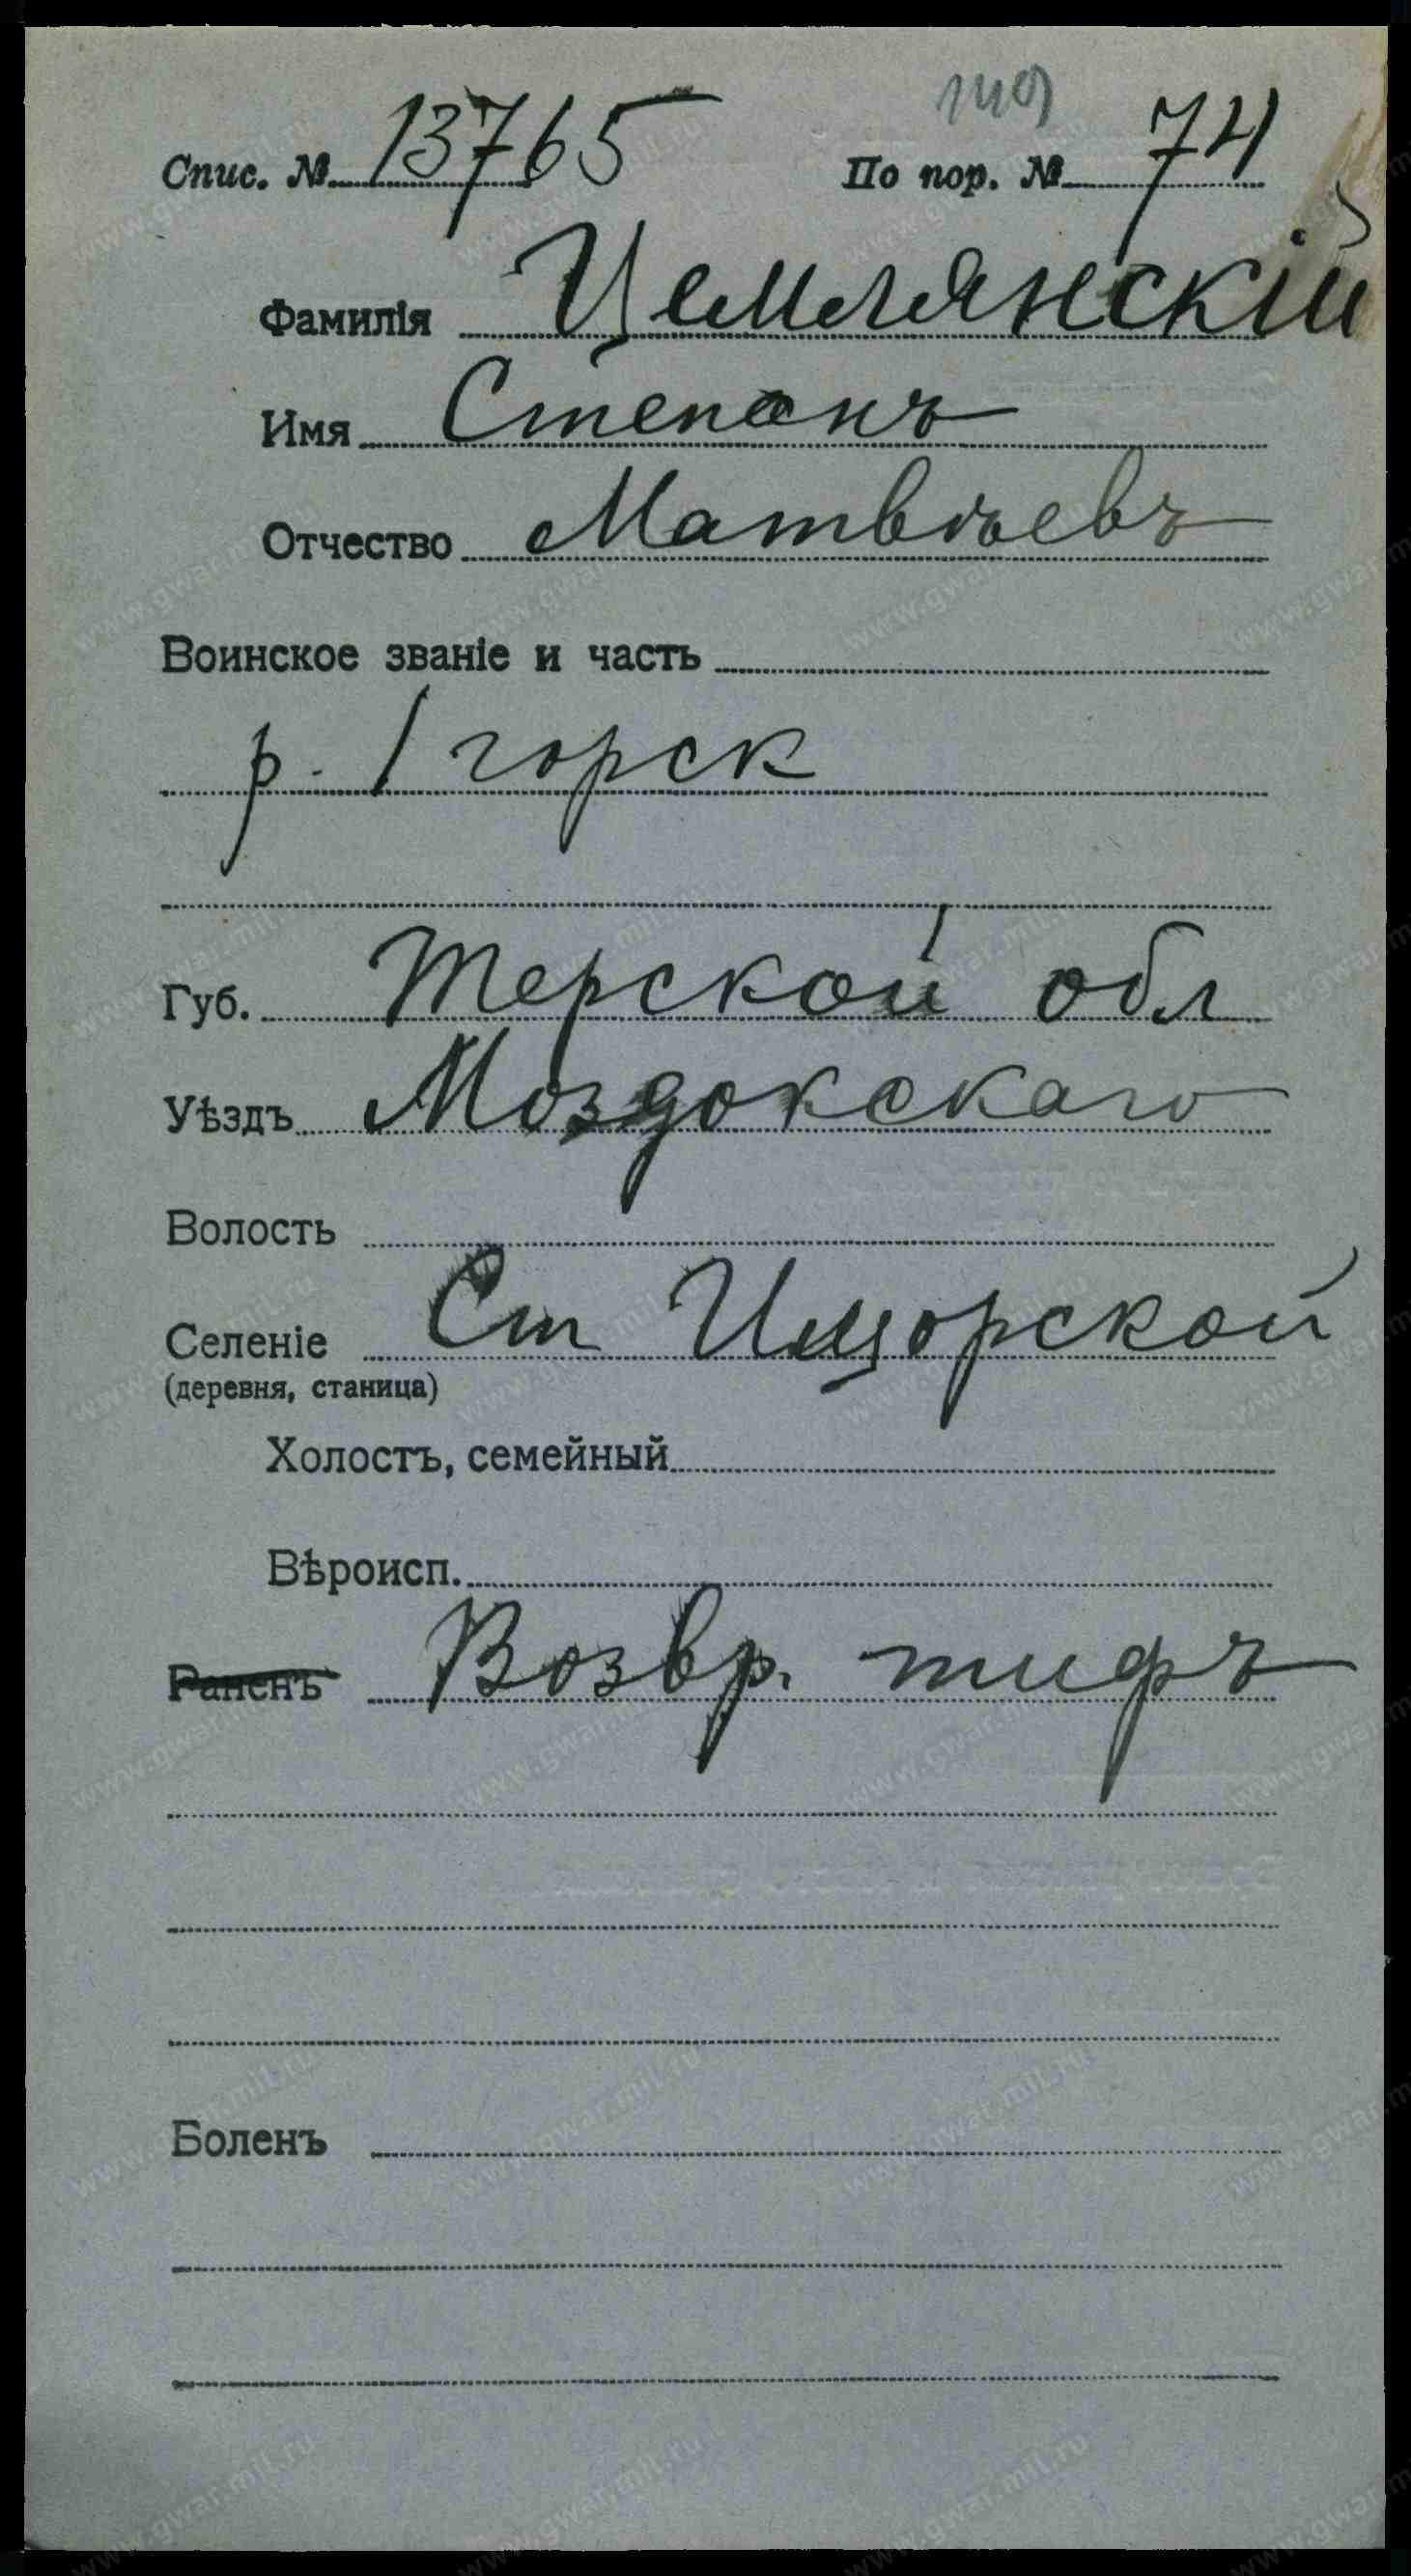 Спис. № 13765 По пор. № 74
Фамилія Цемлянскій
Имя Степанъ
Отчество Матвѣевъ
Воинское званіе и часть
р. 1 горск
Губ. Терской обл
Уѣздъ Моздокскаго
Волость
Селеніе Ст Ищорской
(деревня, станица)
Холостъ, семейный
Вѣроисп.
Раненъ Возвр. тифъ
Боленъ